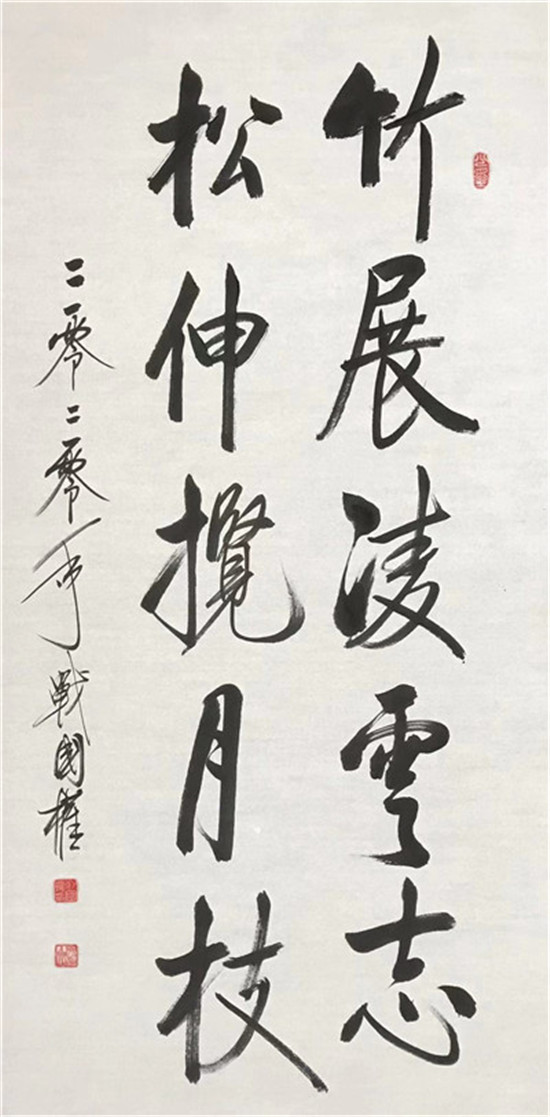 竹展凌雲志
松伸攬月枝
二零二零年戰國權